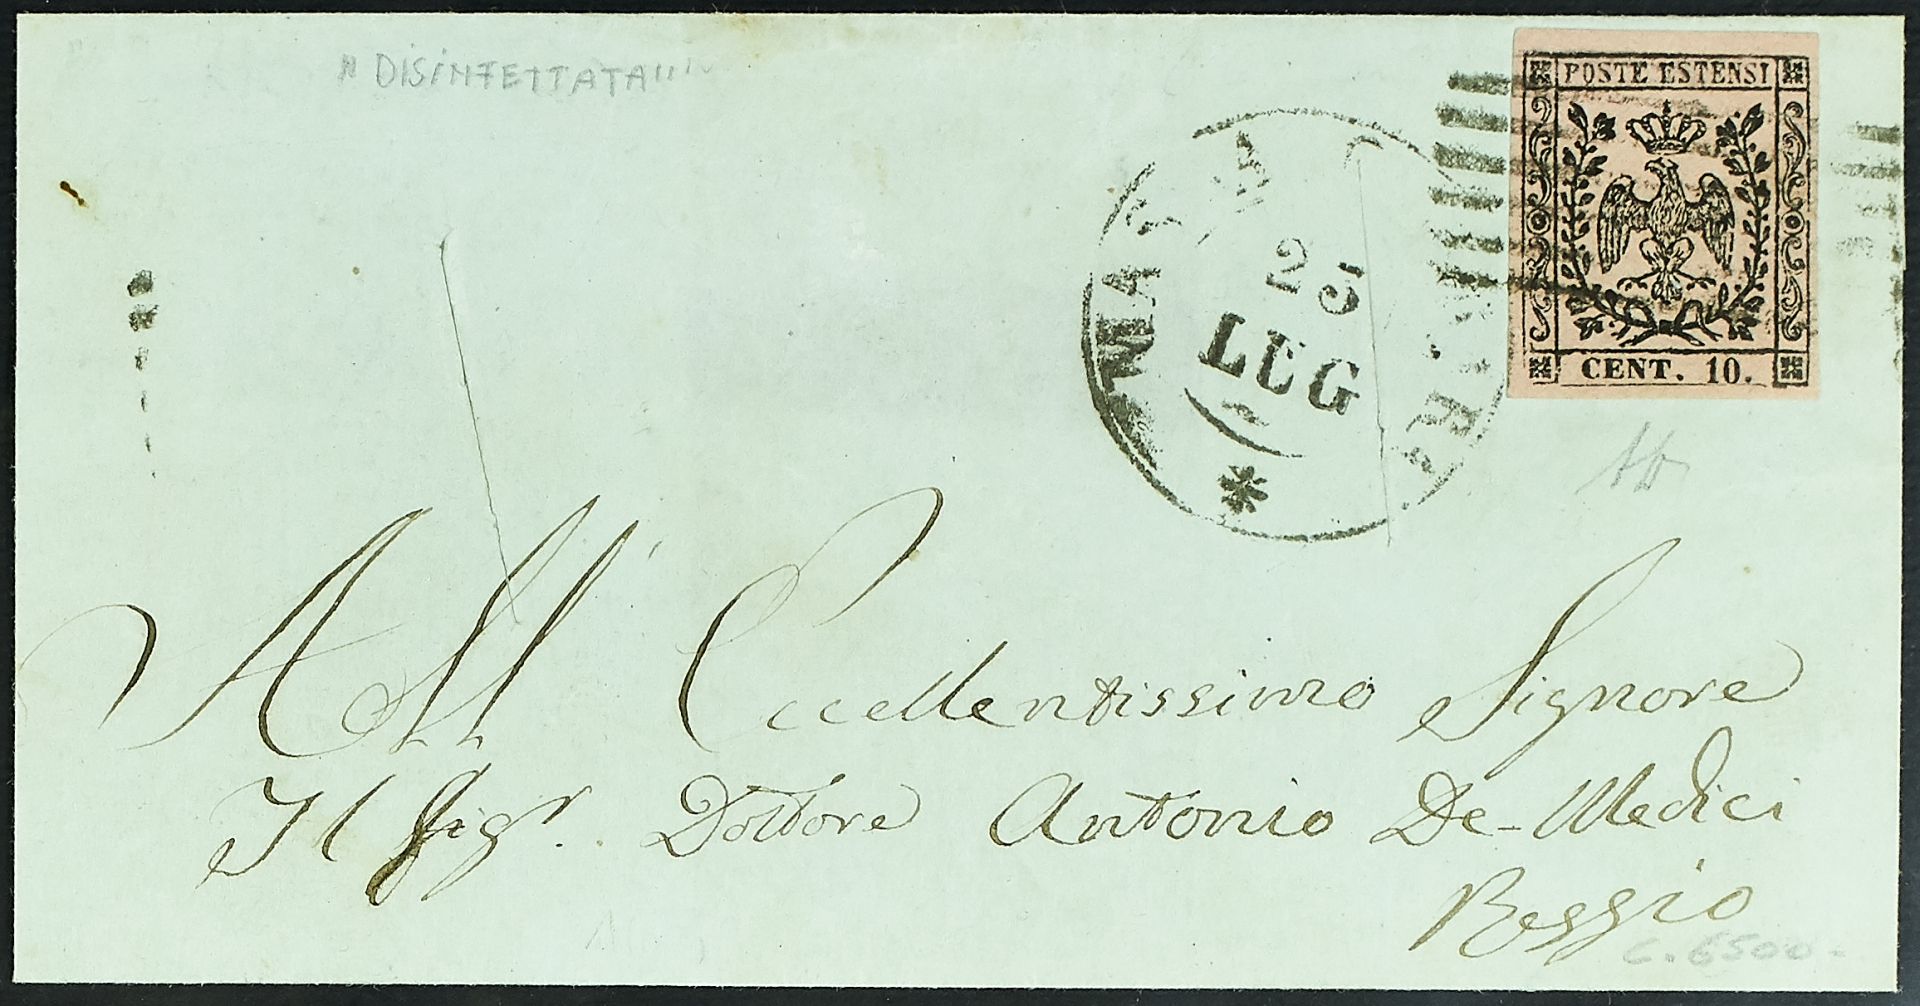 "DISINFETTATA"
POSTE ESTENSI
25
LUG
CENT. 10.
All' Eccellentissimo Signore
Il Sigr. Dottore Antonio De-Medici
Reggio
C. 6500-